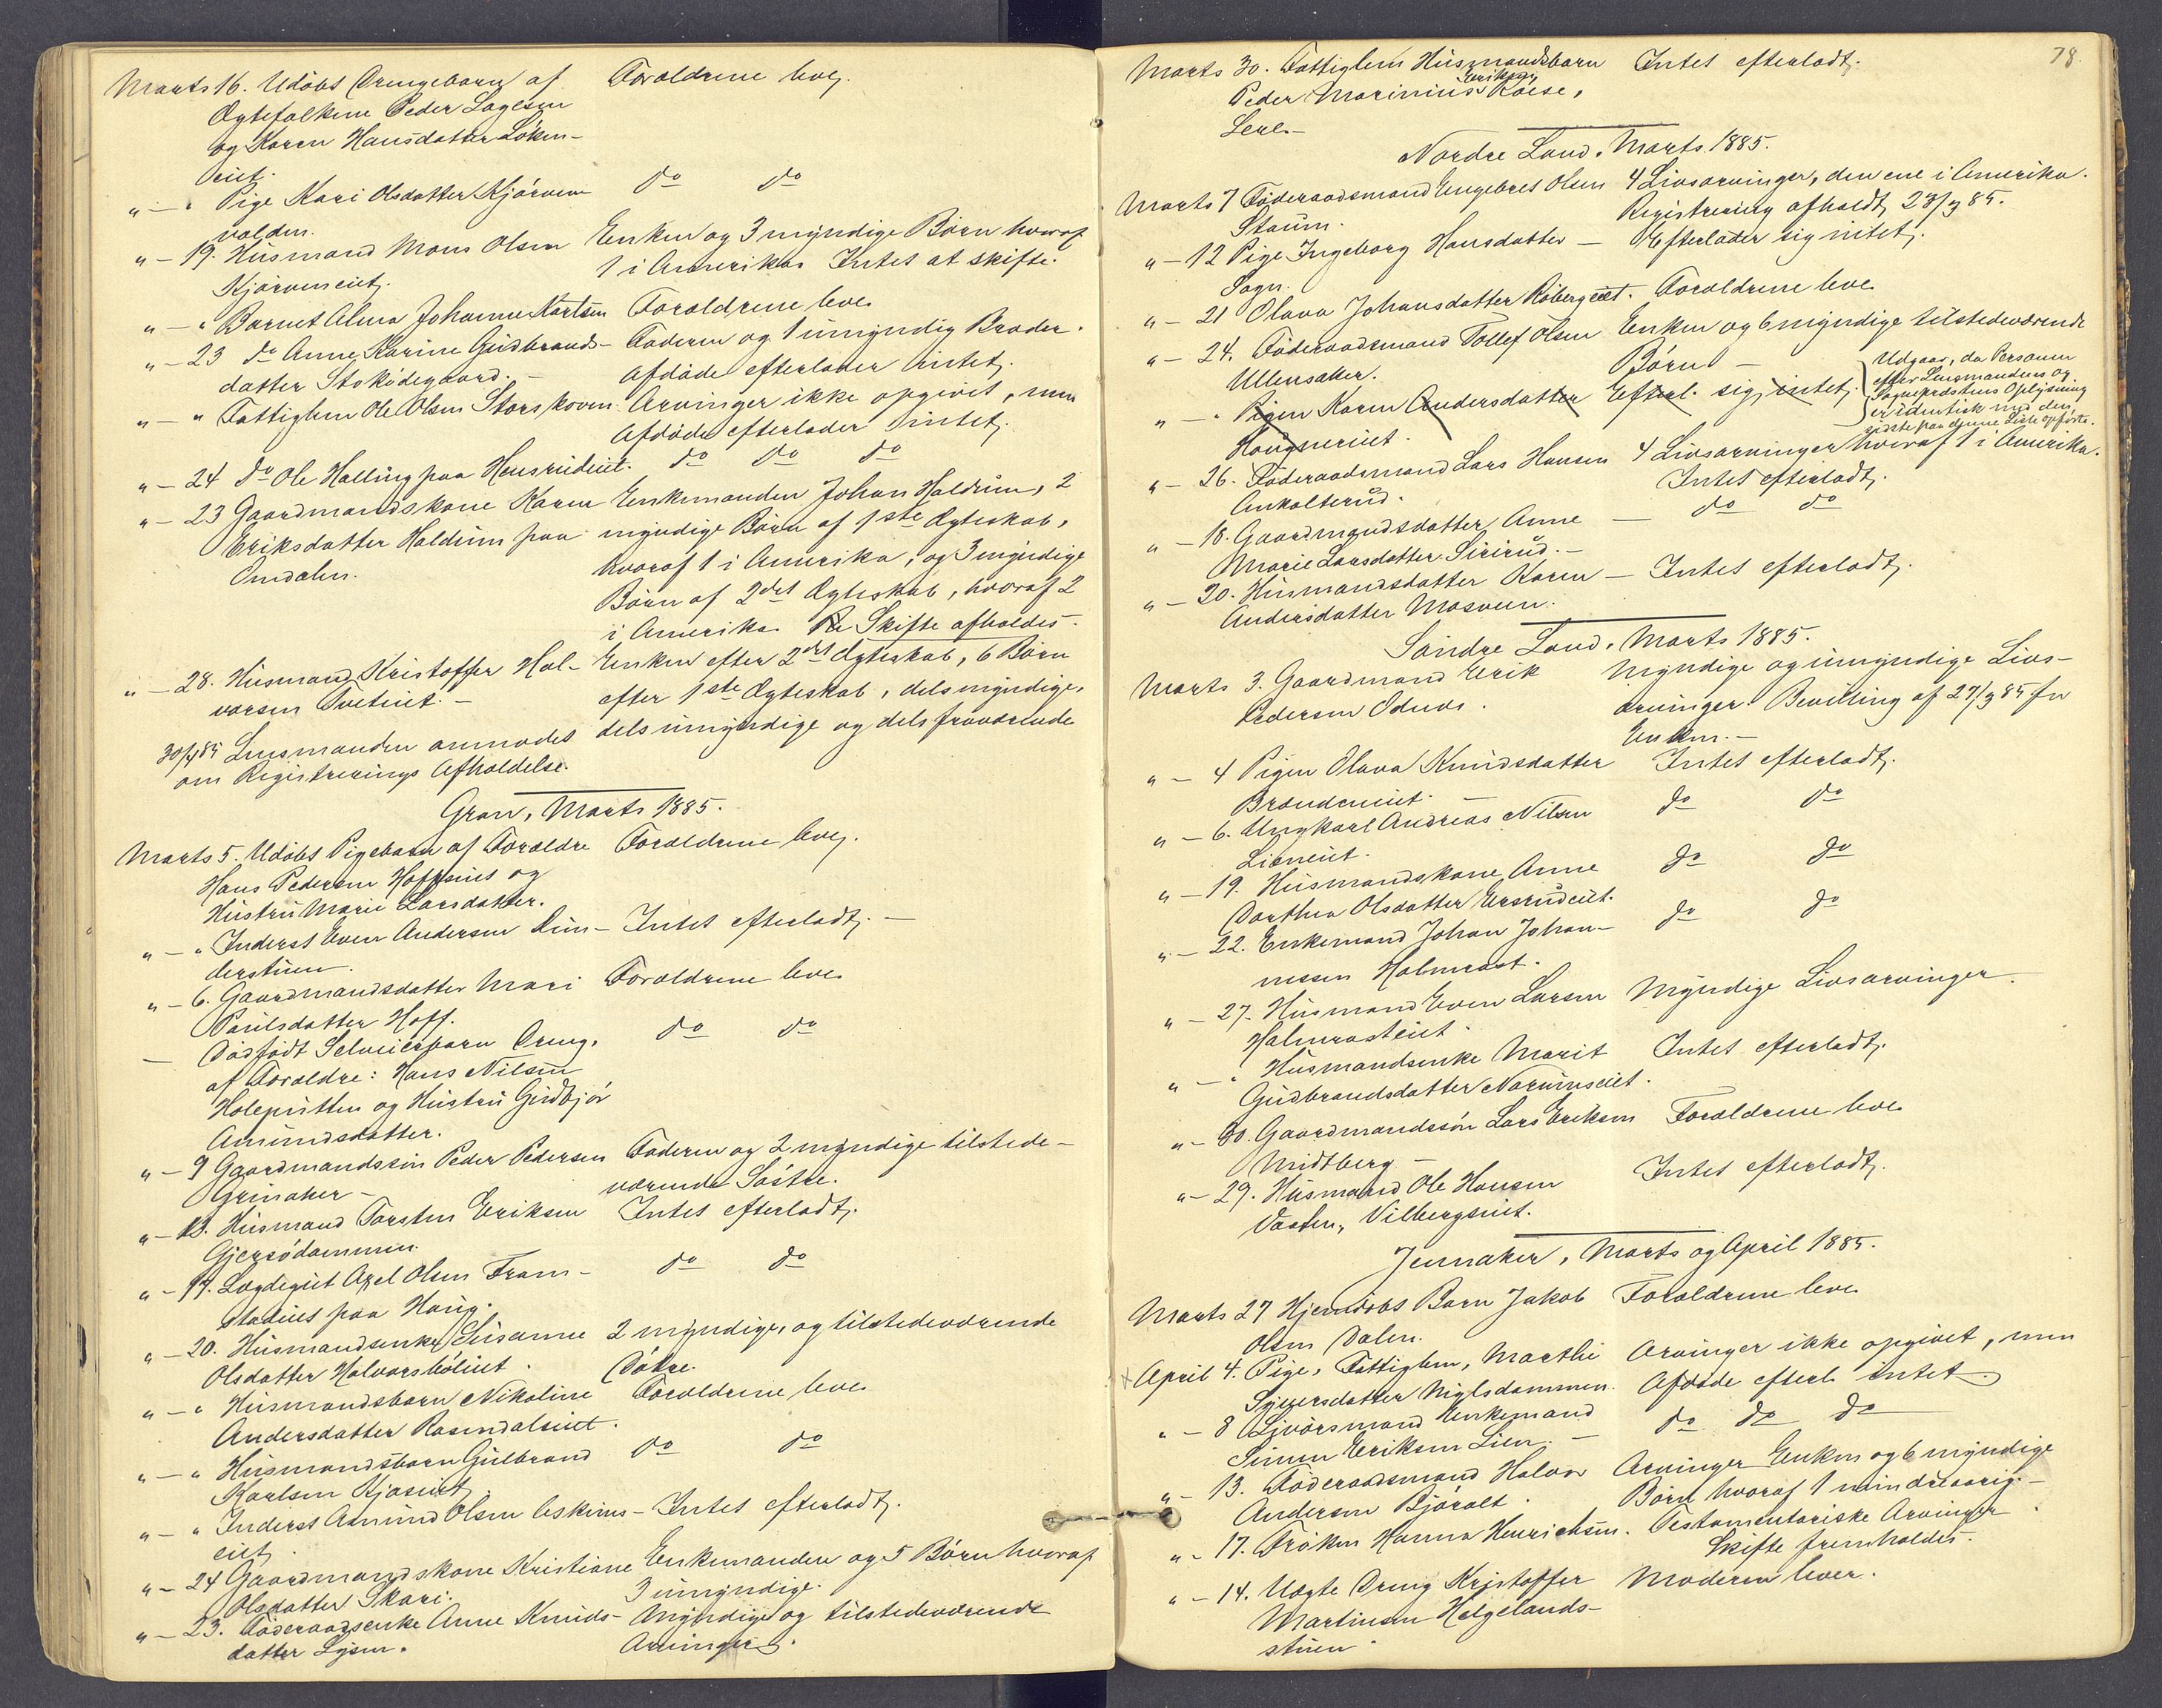 Marts 16. Udöbt Drengebarn af Forældrene leve.
Ægtefolkene Peder Lagesen
og Karen Hansdatter Löken-
eiet.
" — " Pige Kari Olsdatter Kjörven- do do
volden.
" — 19. Husmand Mons Olsen Enken og 3 myndige Börn hvoraf
Kjörveneiet. 1 i Amerika. Intet at skifte.
" — " Barnet Alma Johanne Karlsen Forældrene leve.
" — 23 do Anne Karine Gudbrands- Faderen og 1 umyndig Broder.
datter Stoködegaard. — Afdöde efterlader intet.
" — " Fattiglem Ole Olsen Storskoven. Arvinger ikke opgivet, men
Afdöde efterlader intet.
" — 24 do Ole Halling paa Hensrudeiet. do do do
" — 23 Gaardmandskone Karen Enkemanden Johan Haldum, 2
Eriksdatter Haldum paa myndige Börn af 1ste Ægteskab,
Omdalen. hvoraf 1 i Amerika, og 3 myndige
Börn af 2det Ægteskab, hvoraf 2
i Amerika. Skifte afholdes.
" — 28. Husmand Kristoffer Hal- Enken efter 2det Ægteskab, 6 Börn
vorsen Tveteiet. — efter 1ste Ægteskab, dels myndige,
30/4 85 Lensmanden anmodet dels umyndige og dels fraværende
om Registrerings Afholdelse.
Gran, Marts 1885.
Marts 5. Udöbt Pigebarn af Forældre Forældrene leve.
Hans Pedersen Hoffseiet og
Hustru Marie Larsdatter.
" — " Inderst Even Andersen Lun- Intet efterladt. —
derstuen.
" — 6. Gaardmandsdatter Mari Forældrene leve.
Paulsdatter Hoff.
— Dödfödt Selveierbarn Dreng, do do
af Forældre: Hans Nilsen
Holeputten og Hustru Gudbjör
Amundsdatter.
" — 9 Gaardmandssön Peder Pedersen Faderen og 2 myndige tilstede-
Grinaker — værende Söstre.
" — 13. Husmand Torsten Eriksen Intet efterladt.
Gjersödammen.
" — 17. Lægdegut Axel Olsen Fram- do do
stadeiet paa Haug.
" — 20. Husmandsenke Susanne 2 myndige, og tilstedeværende
Olsdatter Halvorsböleiet. Dötre.
" — " Husmandsbarn Nikoline Forældrene leve.
Andersdatter Rosendalseiet.
" — " Husmandsbarn Gulbrand do do
Karlsen Kjoseiet.
" — " Inderst Amund Olsen Askims- Intet efterladt.
eiet.
" — 24 Gaardmandskone Kristiane Enkemanden og 5 Börn hvoraf
Olsdatter Skari. 3 umyndige.
" — 23. Föderaadsenke Anne Knuds- Myndige og tilstedeværende
datter Lysen. Arvinger.
78.
Marts 30. Fattiglem Husmandsbarn Intet efterladt.
Eriksen
Peder Marinius Roese,
Nordre Land, Marts 1885.
Marts 7 Föderaadsmand Engebret Olsen 4 Livsarvinger, den ene i Amerika.
Staum. Registrering afholdt 28/3 85.
" — 12 Pige Ingeborg Hansdatter — Efterlader sig intet.
Sogn.
" — 21 Olava Johansdatter Röbergeiet. Forældrene leve.
" — 24. Föderaadsmand Tollef Olsen Enken og 6 myndige tilstedeværende
Ullensaker. Börn —
" — " Pigen Karen Andersdatter Efterl. sig intet.
Haugnereiet.
Udgaar, da Personen
efter Lensmandens og
Sognepræstens Oplysning
er identisk med den
sidste paa denne Liste opförte.
" — 26. Föderaadsmand Lars Hansen 4 Livsarvinger hvoraf 1 i Amerika.
Ankolterud. Intet efterladt.
" — 18. Gaardmandsdatter Anne — do do
Marie Larsdatter Sirirud. —
" — 20. Husmandsdatter Karen — Intet efterladt.
Andersdatter Mosveen.
Söndre Land, Marts 1885.
Marts 3. Gaardmand Erik Myndige og umyndige Livs-
Pedersen Odnes. arvinger. Bevilling af 27/3 85 for
Enken. —
" — 4 Pigen Olava Knudsdatter Intet efterladt.
Brændeneiet. —
" — 6. Ungkarl Andreas Nilsen do do
Lieneiet.
" — 19. Husmandskone Anne do do
Dorthea Olsdatter Ersrudeiet.
" — 22. Enkemand Johan Johan- do do
nessen Halmrast.
" — 27. Husmand Even Larsen Myndige Livsarvinger.
Halmrasteiet.
" — " Husmandsenke Marit Intet efterladt.
Gudbrandsdatter Norumseiet.
" — 30. Gaardmandssön Lars Eriksen Forældrene leve.
Midtberg —
" — 29. Husmand Ole Hansen Intet efterladt.
Vasten, Vilbergseiet.
Jevnaker, Marts og April 1885.
Marts 27 Hjemdöbt Barn Jakob Forældrene leve.
Olsen Dalen.
April 4. Pige, Fattiglem, Marthe Arvinger ikke opgivet, men
Syversdatter Myhlsdammen. Afdöde efterl. intet.
" — 8 Enkemand do do do
Simen Eriksen Lien. —
" — 13. Föderaadsmand Halvor Arvinger Enken og 6 myndige
Andersen Björalt. Börn hvoraf 1 mindreaarig. —
" — 17. Fröken Hanna Henrichsen. Testamentariske Arvinger.
Skifte fremholdes.
" — 14. Uægte Dreng Kristoffer Moderen lever.
Martinsen Helgelands-
stuen.